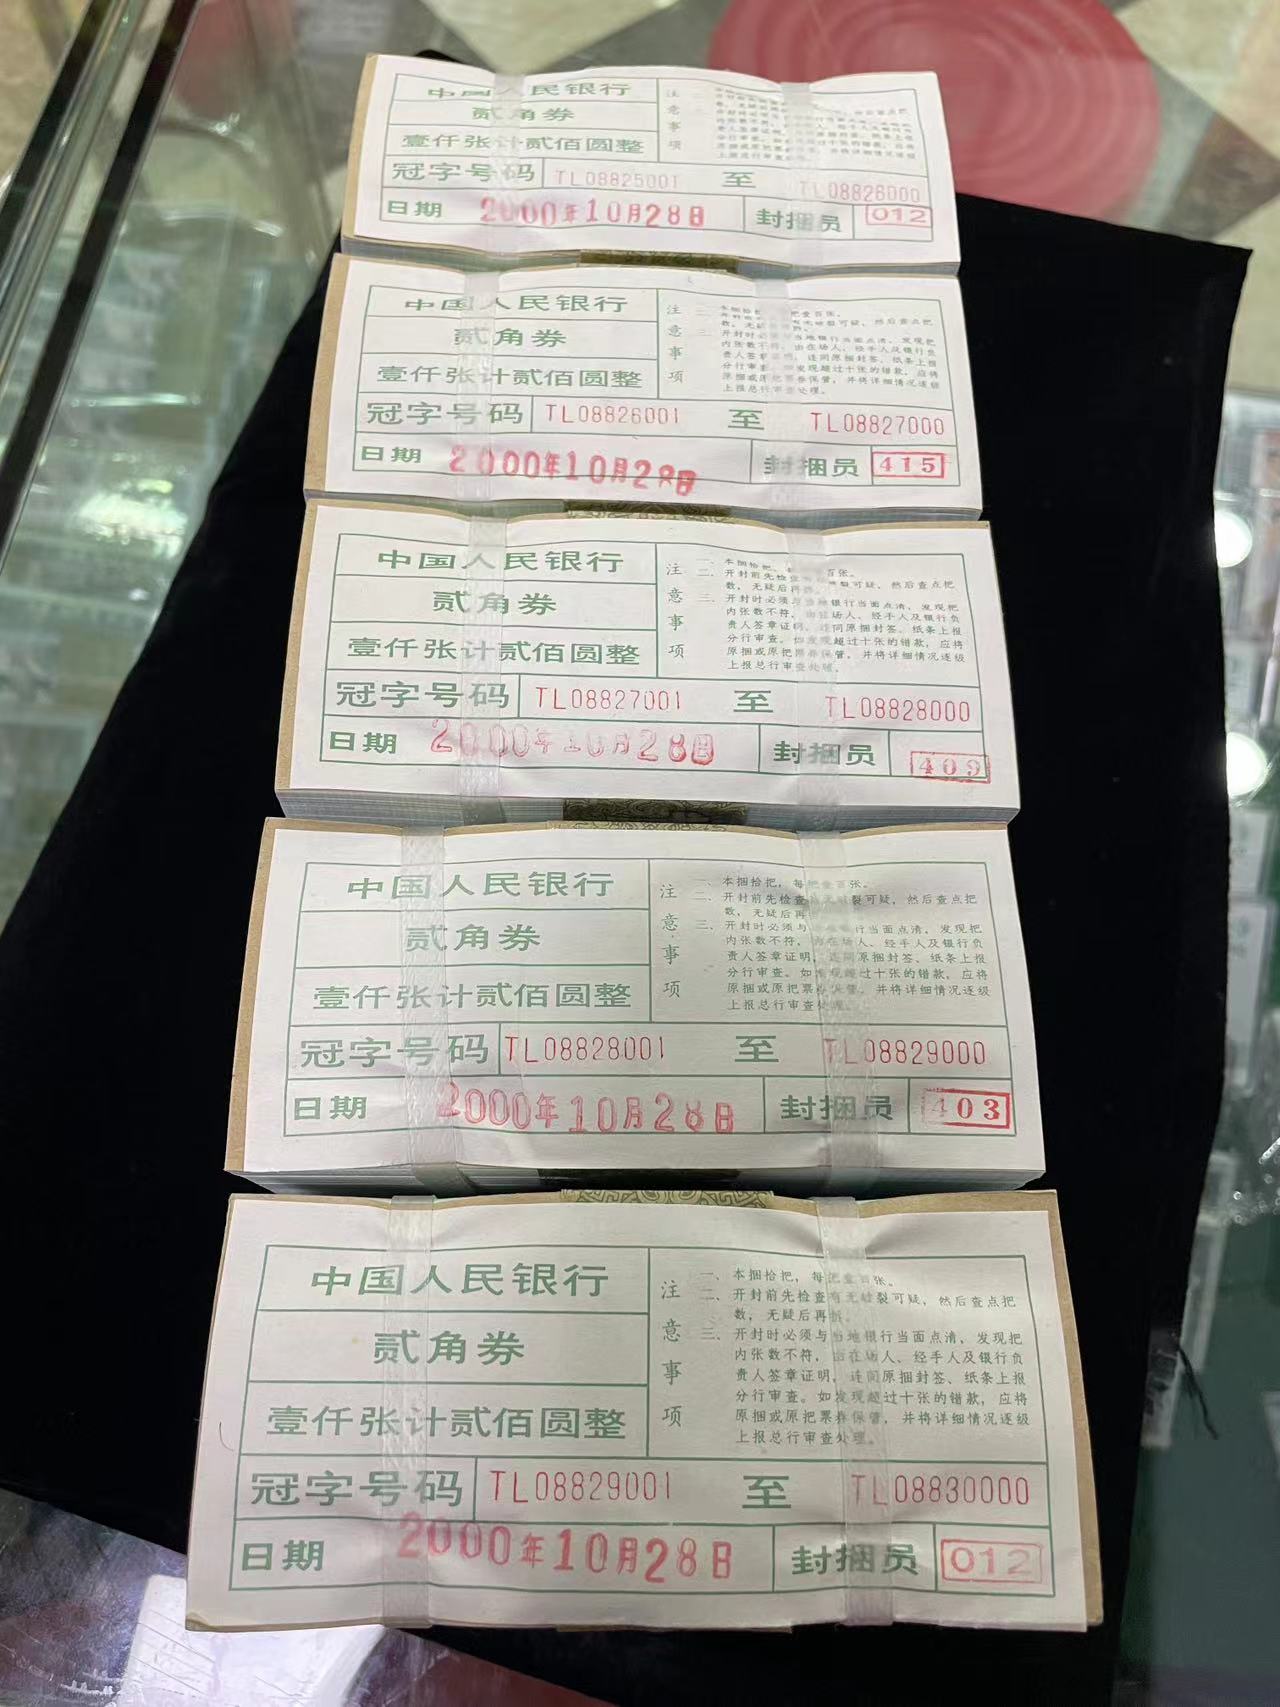 中国人民银行
贰角券
壹仟张计贰佰圆整
冠字号码 TL08825001 至 TL08826000
日期 2000年10月28日 封捆员 012
注意事项
上报总行审查处理。
中国人民银行
贰角券
壹仟张计贰佰圆整
冠字号码 TL08826001 至 TL08827000
日期 2000年10月28日 封捆员 415
注意事项
数，无疑
然后查点把
三、开封时必须与当地银行当面点清，发现把
内张数不符，由在场人、经手人及银行负
责人签章证明，连同原捆封签、纸条上报
分行审查。如发现超过十张的错款，应将
原捆或原把票券保管，并将详细情况逐级
上报总行审查处理。
中国人民银行
贰角券
壹仟张计贰佰圆整
冠字号码 TL08827001 至 TL08828000
日期 2000年10月28日 封捆员 409
注意事项
一、本捆拾把，百张。
二、开封前先检查裂可疑，然后查点把
数，无疑后再拆
三、开封时必须与当地银行当面点清，发现把
内张数不符，由在场人、经手人及银行负
责人签章证明，连同原捆封签、纸条上报
分行审查。如发现超过十张的错款，应将
原捆或原把票券保管，并将详细情况逐级
上报总行审查处理。
中国人民银行
贰角券
壹仟张计贰佰圆整
冠字号码 TL08828001 至 TL08829000
日期 2000年10月28日 封捆员 403
注意事项
一、本捆拾把，每把壹百张。
二、开封前先检查有无破裂可疑，然后查点把
数，无疑后再
三、开封时必须与当地银行当面点清，发现把
内张数不符，由在场人、经手人及银行负
责人签章证明，连同原捆封签、纸条上报
分行审查。如发现超过十张的错款，应将
原捆或原把票券保管，并将详细情况逐级
上报总行审查处理。
中国人民银行
贰角券
壹仟张计贰佰圆整
冠字号码 TL08829001 至 TL08830000
日期 2000年10月28日 封捆员 012
注意事项
一、本捆拾把，每把壹百张。
二、开封前先检查有无破裂可疑，然后查点把
数，无疑后再拆。
三、开封时必须与当地银行当面点清，发现把
内张数不符，由在场人、经手人及银行负
责人签章证明，连同原捆封签、纸条上报
分行审查。如发现超过十张的错款，应将
原捆或原把票券保管，并将详细情况逐级
上报总行审查处理。